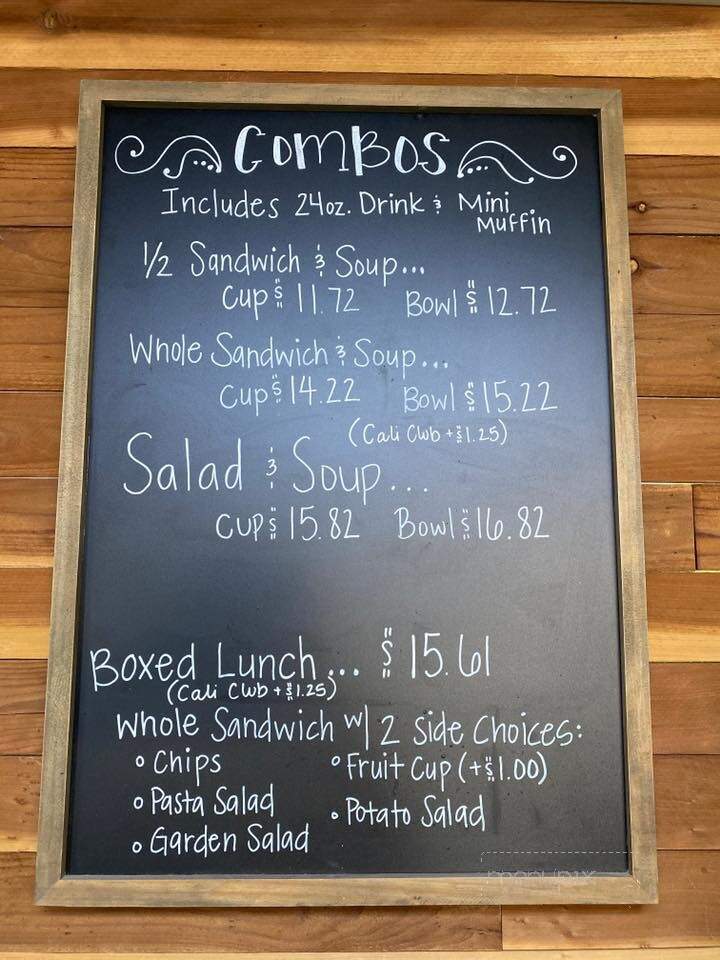 Combos
Includes 24oz. Drink & Mini Muffin
1/2 Sandwich & Soup...
Cup $ 11.72 Bowl $ 12.72
Whole Sandwich & Soup...
Cup $ 14.22 Bowl $ 15.22
(Cali Club + $1.25)
Salad & Soup...
Cup $ 15.82 Bowl $ 16.82
Boxed Lunch... $ 15.61
(Cali Club + $1.25)
Whole Sandwich w/ 2 Side Choices:
• Chips • Fruit Cup (+$1.00)
• Pasta Salad • Potato Salad
• Garden Salad
menupix